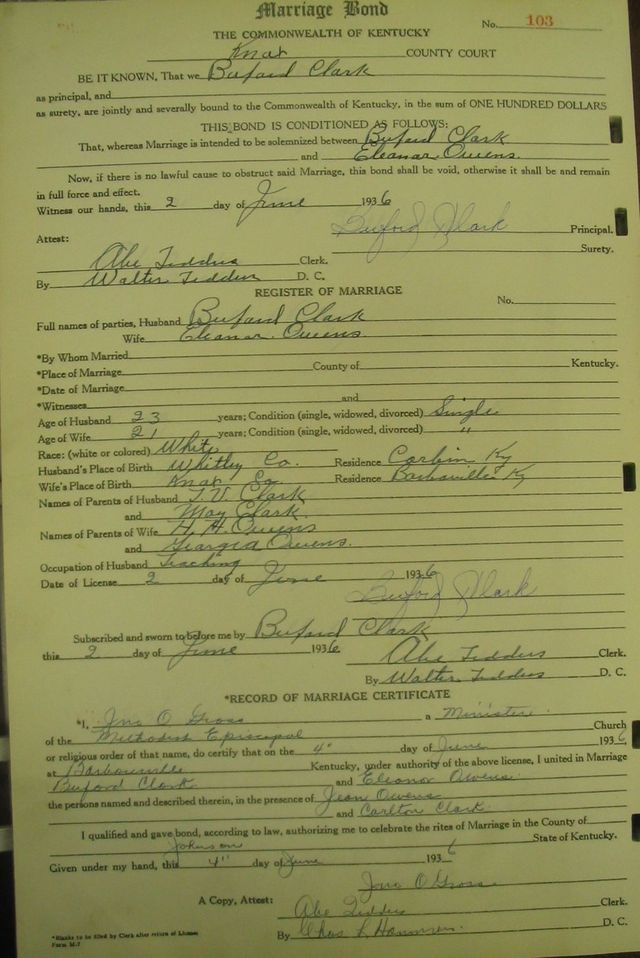 Marriage Bond
No. 103
THE COMMONWEALTH OF KENTUCKY
Knox COUNTY COURT
BE IT KNOWN, That we Buford Clark
as principal, and
as surety, are jointly and severally bound to the Commonwealth of Kentucky, in the sum of ONE HUNDRED DOLLARS
THIS BOND IS CONDITIONED AS FOLLOWS:
That, whereas Marriage is intended to be solemnized between Buford Clark
and Eleanor Owens.
Now, if there is no lawful cause to obstruct said Marriage, this bond shall be void, otherwise it shall be and remain
in full force and effect.
Witness our hands, this 2 day of June 1936
Buford Clark Principal.
Attest: Surety.
Abe Tedders Clerk.
By Walter Tedders D. C.
REGISTER OF MARRIAGE
No.
Full names of parties, Husband Buford Clark
Wife Eleanor Owens
*By Whom Married
*Place of Marriage County of Kentucky.
*Date of Marriage
*Witnesses and
Age of Husband 23 years; Condition (single, widowed, divorced) Single
Age of Wife 21 years; Condition (single, widowed, divorced) "
Race: (white or colored) White
Husband's Place of Birth Whitley Co. Residence Corbin Ky
Wife's Place of Birth Knox Co. Residence Barbourville Ky
Names of Parents of Husband T.V. Clark
and May Clark.
Names of Parents of Wife H. H. Owens
and Georgia Owens.
Occupation of Husband Teaching
Date of License 2 day of June 1936
Buford Clark
Subscribed and sworn to before me by Buford Clark
this 2 day of June 1936
Abe Tedders Clerk.
By Walter Tedders D. C.
*RECORD OF MARRIAGE CERTIFICATE
*I, Jno O Gross a Minister
of the Methodist Episcopal Church
or religious order of that name, do certify that on the 4" day of June 1936,
at Barbourville Kentucky, under authority of the above license, I united in Marriage
Buford Clark and Eleanor Owens
the persons named and described therein, in the presence of Jean Owens
and Carlton Clark
I qualified and gave bond, according to law, authorizing me to celebrate the rites of Marriage in the County of
Johnson State of Kentucky.
Given under my hand, this 4" day of June 1936
Jno O Gross
A Copy, Attest: Abe Tedders Clerk.
By Chas D. C.
*Blanks to be filled by Clerk after return of License
Form M-7